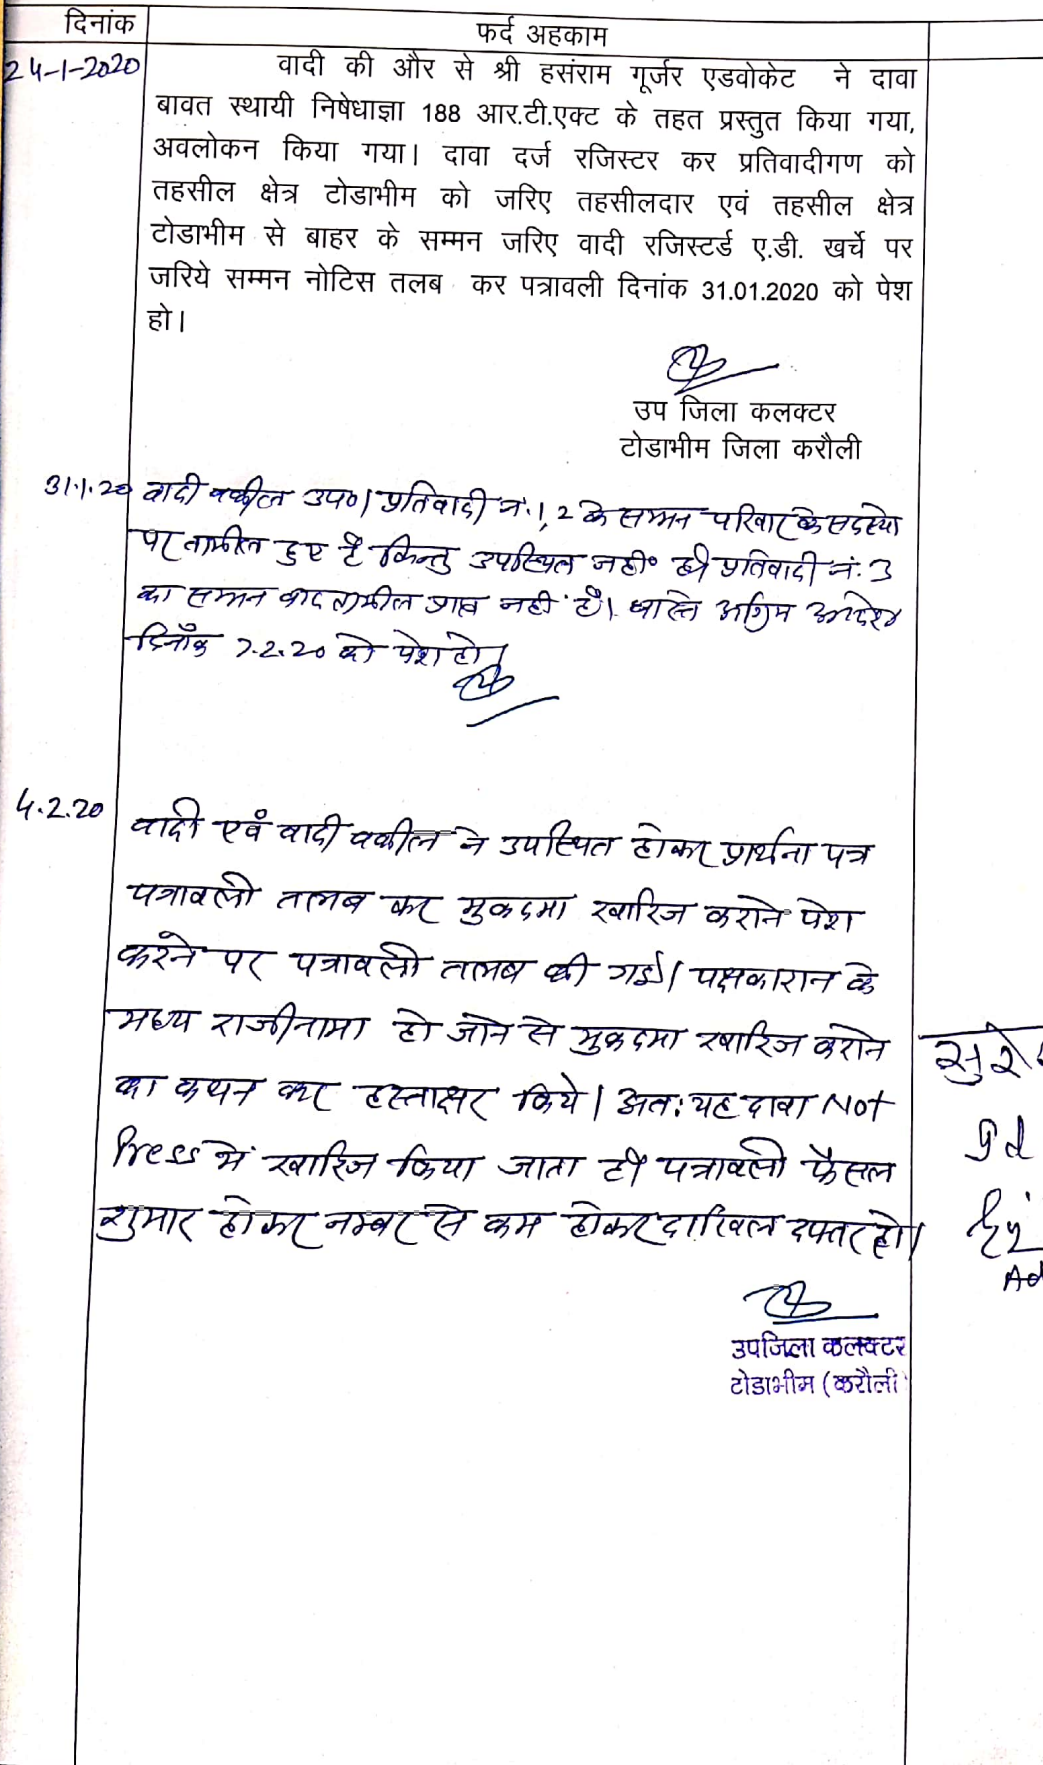 दिनांक
फर्द अहकाम
24-1-2020
वादी की और से श्री हसंराम गूर्जर एडवोकेट ने दावा
बावत स्थायी निषेधाज्ञा 188 आर.टी.एक्ट के तहत प्रस्तुत किया गया,
अवलोकन किया गया। दावा दर्ज रजिस्टर कर प्रतिवादीगण को
तहसील क्षेत्र टोडाभीम को जरिए तहसीलदार एवं तहसील क्षेत्र
टोडाभीम से बाहर के सम्मन जरिए वादी रजिस्टर्ड ए.डी. खर्चे पर
जरिये सम्मन नोटिस तलब कर पत्रावली दिनांक 31.01.2020 को पेश
हो।
उप जिला कलक्टर
टोडाभीम जिला करौली
31.1.20 वादी वकील उप०। प्रतिवादी नं. 1, 2 के सम्मन परिवार के सदस्यो
पर तामील हुए है किन्तु उपस्थित नही० है। प्रतिवादी नं. 3
का सम्मन बाद तामील प्राप्त नही है। वास्ते अग्रिम आदेश
दिनाँक 7.2.20 को पेश हो।
4.2.20 वादी एवं वादी वकील ने उपस्थित होकर प्रार्थना पत्र
पत्रावली तलब कर मुकदमा खारिज कराने पेश
करने पर पत्रावली तलब की गई। पक्षकारान के
मध्य राजीनामा हो जाने से मुकदमा खारिज कराने
का कथन कर हस्ताक्षर किये। अतः यह दावा Not
Press में खारिज किया जाता है। पत्रावली फैसल
शुमार होकर नम्बर से कम होकर दाखिल दफ्तर हो।
उपजिला कलक्टर
टोडाभीम (करौली)
सुरे
Ad